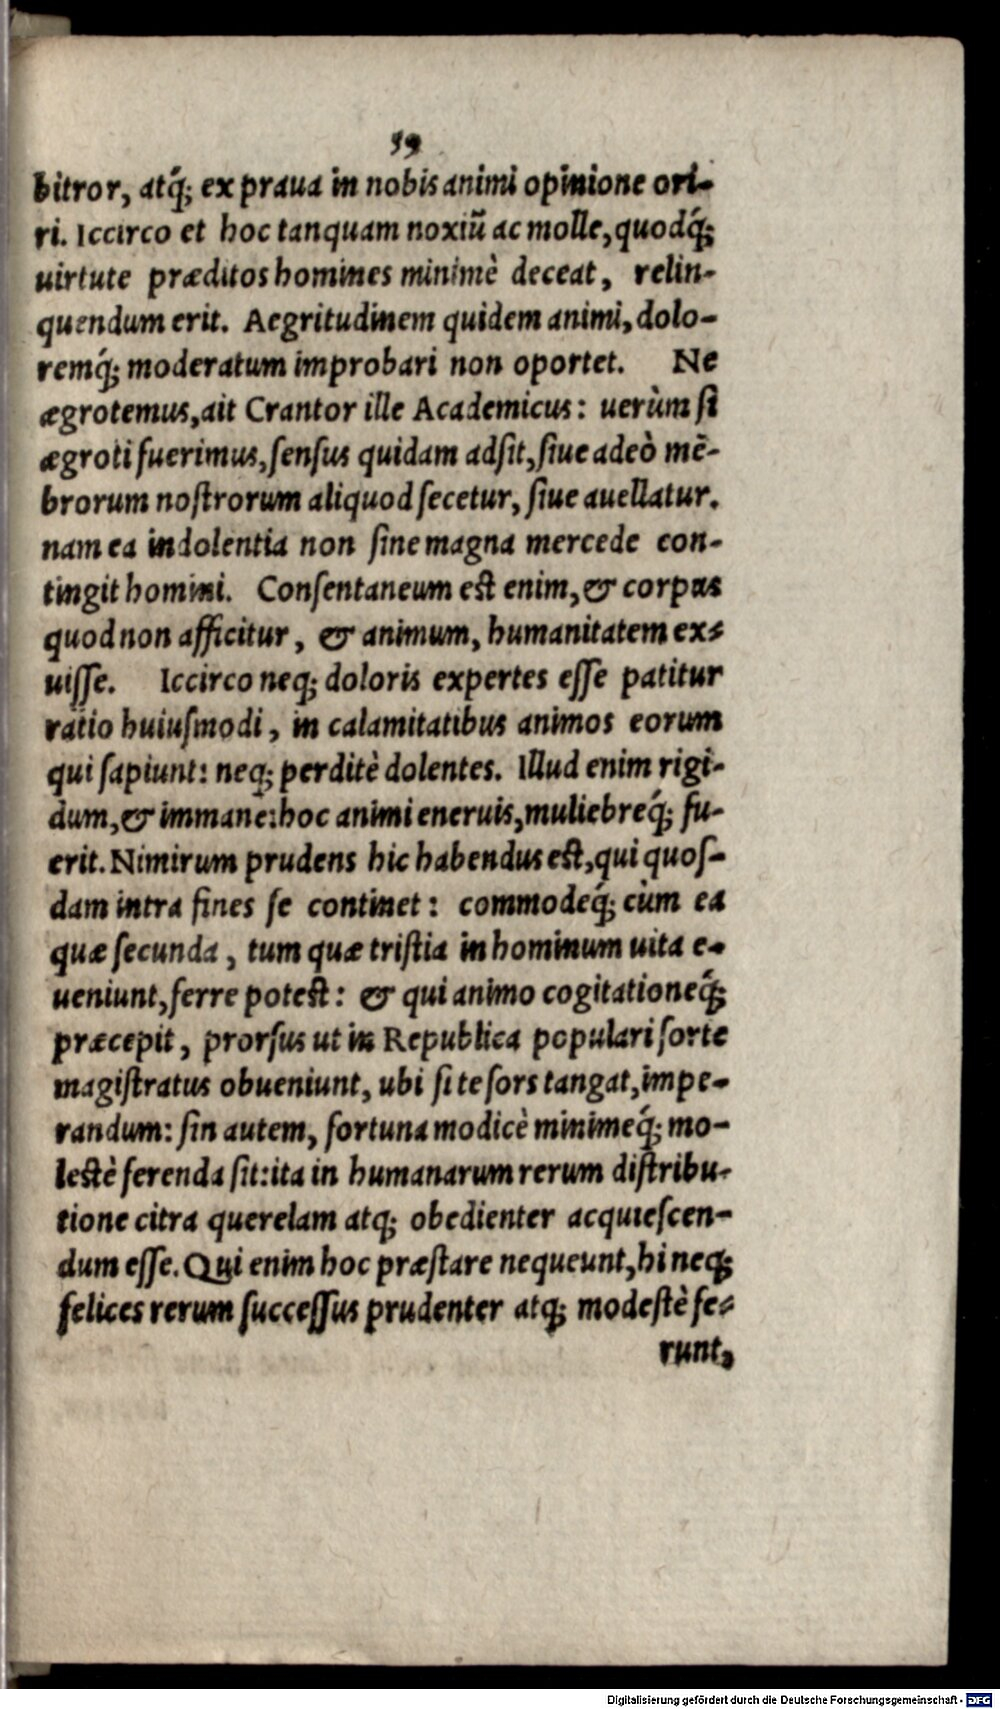 59
bitror, atq́; ex praua in nobis animi opinione ori-
ri. Iccirco et hoc tanquam noxiũ ac molle, quodq́;
uirtute præditos homines minimè deceat, relin-
quendum erit. Aegritudinem quidem animi, dolo-
remq́; moderatum improbari non oportet. Ne
ægrotemus, ait Crantor ille Academicus: uerùm si
ægroti fuerimus, ſenſus quidam adſit, ſiue adeò mē-
brorum noſtrorum aliquod ſecetur, ſiue auellatur.
nam ea indolentia non ſine magna mercede con-
tingit homini. Conſentaneum eſt enim, & corpus
quod non afficitur, & animum, humanitatem ex-
uiſſe. Iccirco neq; doloris expertes eſſe patitur
ratio huiuſmodi, in calamitatibus animos eorum
qui ſapiunt: neq; perditè dolentes. Illud enim rigi-
dum, & immane: hoc animi eneruis, muliebreq́; fu-
erit. Nimirum prudens hic habendus eſt, qui quoſ-
dam intra fines ſe continet: commodeq́; cùm ea
quæ ſecunda, tum quæ triſtia in hominum uita e-
ueniunt, ferre poteſt: & qui animo cogitationeq́;
præcepit, prorſus ut in Republica populari ſorte
magiſtratus obueniunt, ubi ſi te ſors tangat, impe-
randum: ſin autem, fortuna modicè minimeq́; mo-
leſtè ferenda ſit: ita in humanarum rerum diſtribu-
tione citra querelam atq; obedienter acquieſcen-
dum eſſe. Qui enim hoc præſtare nequeunt, hi neq;
felices rerum ſucceſſus prudenter atq; modeſtè fe-
runt,
Digitalisierung gefördert durch die Deutsche Forschungsgemeinschaft - DFG